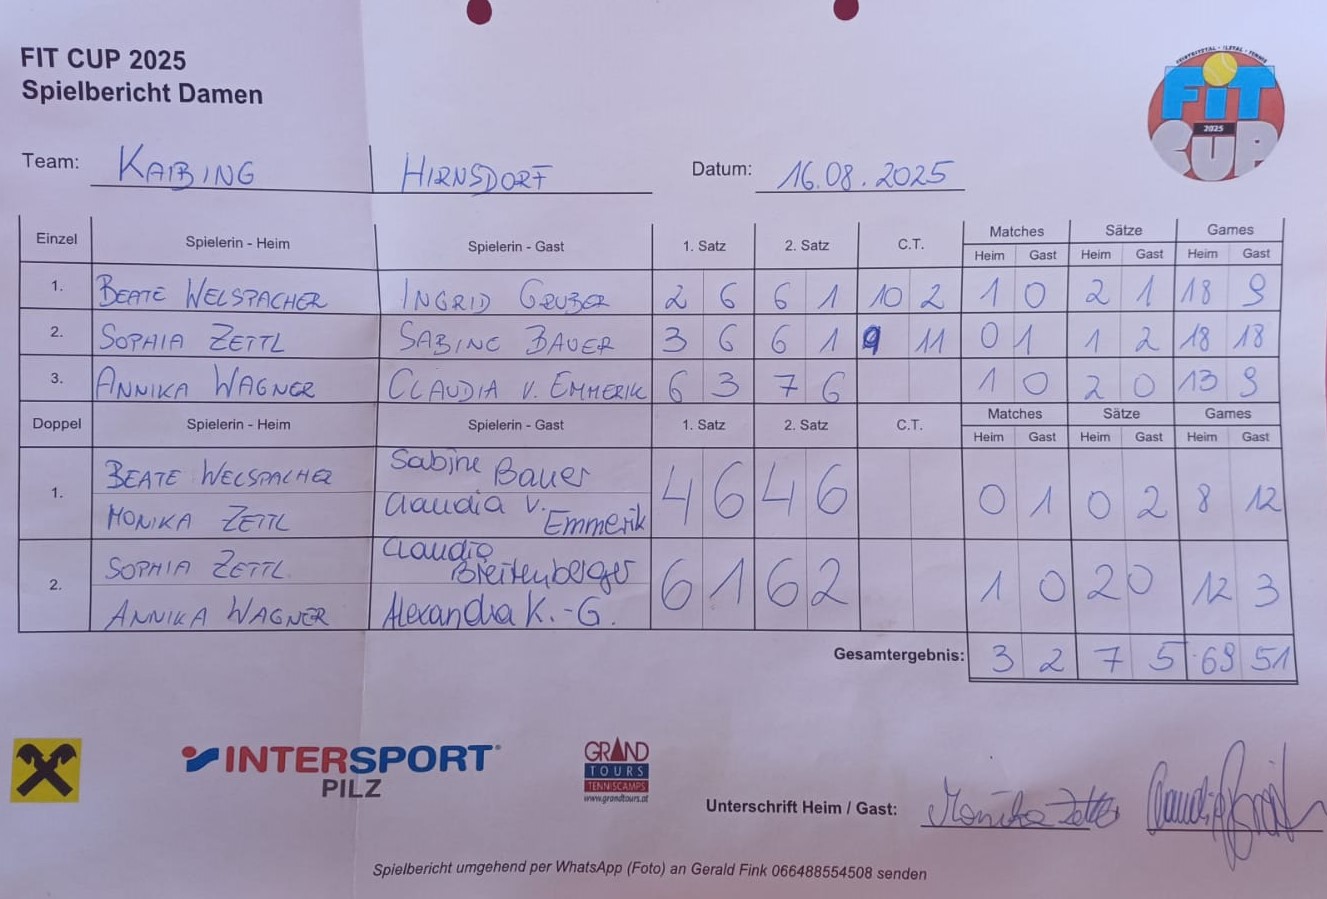 FIT CUP 2025
Spielbericht Damen
FEISTRITZTAL - ILZTAL - TENNIS
FiT
2025
CUP
Team: KAIBING HIRNSDORF Datum: 16.08.2025
Einzel Spielerin - Heim Spielerin - Gast 1. Satz 2. Satz C.T. Matches Sätze Games
Heim Gast Heim Gast Heim Gast
1. BEATE WELSPACHER INGRID GRUBER 2 6 6 1 10 2 1 0 2 1 18 9
2. SOPHIA ZETTL SABINE BAUER 3 6 6 1 9 11 0 1 1 2 18 18
3. ANNIKA WAGNER CLAUDIA V. EMMERIK 6 3 7 6 1 0 2 0 13 9
Doppel Spielerin - Heim Spielerin - Gast 1. Satz 2. Satz C.T. Matches Sätze Games
Heim Gast Heim Gast Heim Gast
1. BEATE WELSPACHER Sabine Bauer 4 6 4 6 0 1 0 2 8 12
MONIKA ZETTL Claudia V. Emmerik
2. SOPHIA ZETTL Claudia Breitenberger 6 1 6 2 1 0 2 0 12 3
ANNIKA WAGNER Alexandra K.-G.
Gesamtergebnis: 3 2 7 5 69 51
INTERSPORT
PILZ
GRAND
TOURS
TENNISCAMPS
www.grandtours.at
Unterschrift Heim / Gast: Monika Zettl
Spielbericht umgehend per WhatsApp (Foto) an Gerald Fink 066488554508 senden